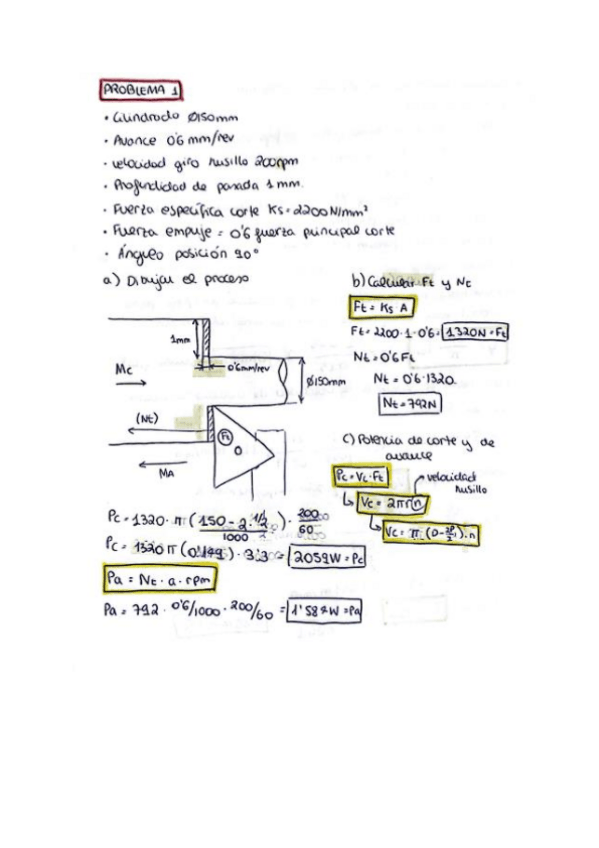 PROBLEMA 1
• Cilindrado Ø150mm
• Avance 0'6 mm/rev
• velocidad giro husillo 200rpm
• Profundidad de pasada 1 mm.
• Fuerza específica corte Ks=2200N/mm²
• Fuerza empuje = 0'6 fuerza principal corte
• Ángulo posición 90°
a) Dibujar el proceso
1mm
0'6mm/rev
Mc
Ø150mm
(Nt)
Ft
MA
b) Calcular Ft y Nt
Ft = Ks · A
Ft = 2200 · 1 · 0'6 = 1320N = Ft
Nt = 0'6 Ft
Nt = 0'6 · 1320.
Nt = 792N
c) Potencia de corte y de
avance
Pc = Vc · Ft
velocidad
husillo
Vc = 2πrn
Vc = π · (D - 2P/2) · n
Pc = 1320 · π (150 - 2 · 1/2 / 1000) · 200/60
Pc = 1320 π (0'149) · 3'3 = 2059W = Pc
Pa = Nt · a · rpm
Pa = 792 · 0'6/1000 · 200/60 = 1'587W = Pa